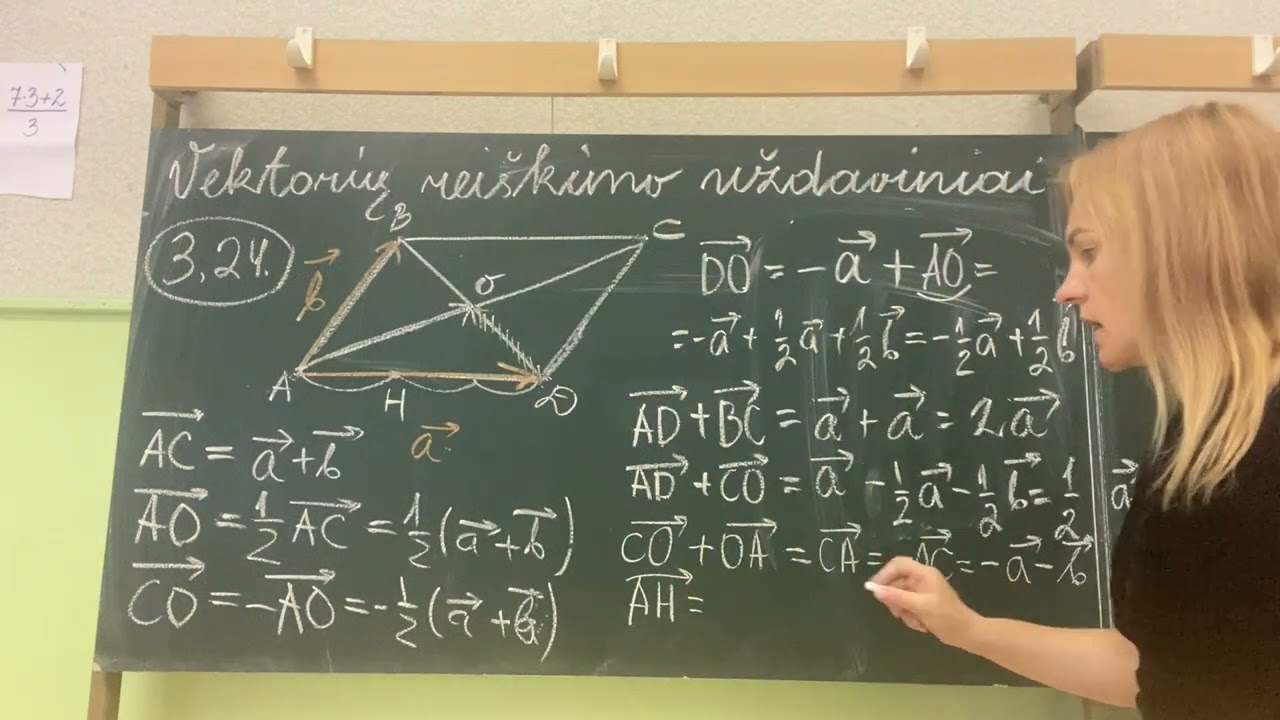 7·3+2
3
Vektorių reiškimo uždaviniai
3,24.
B
C
O
A
H
D
b⃗
a⃗
AC⃗ = a⃗ + b⃗
AO⃗ = 1/2 AC⃗ = 1/2 (a⃗ + b⃗)
CO⃗ = -AO⃗ = -1/2 (a⃗ + b⃗)
DO⃗ = -a⃗ + AO⃗ =
= -a⃗ + 1/2 a⃗ + 1/2 b⃗ = -1/2 a⃗ + 1/2 b
AD⃗ + BC⃗ = a⃗ + a⃗ = 2a⃗
AD⃗ + CO⃗ = a⃗ - 1/2 a⃗ - 1/2 b⃗ = 1/2 a⃗
CO⃗ + OA⃗ = CA⃗ = AC⃗ = -a⃗ - b⃗
AH⃗ =